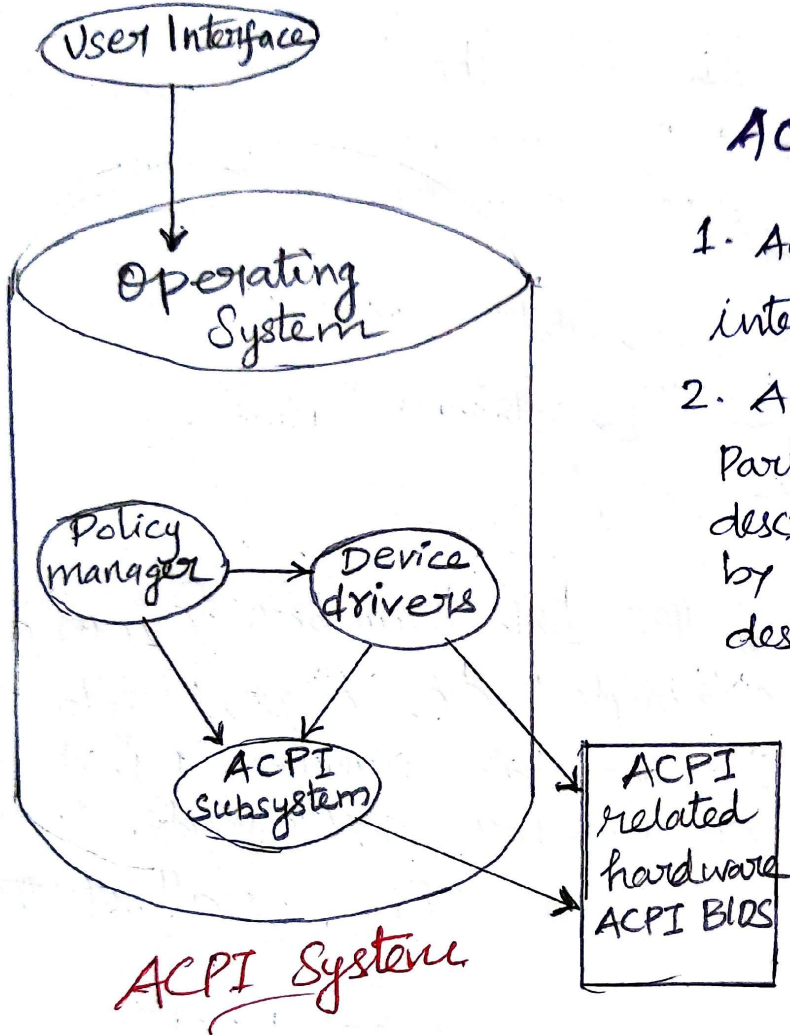 User Interface
Operating
System
Policy
manager
Device
drivers
ACPI
subsystem
ACPI
related
hardware
ACPI BIOS
ACPI System
AC
1. A
inte
2. A
Par
desc
by
des